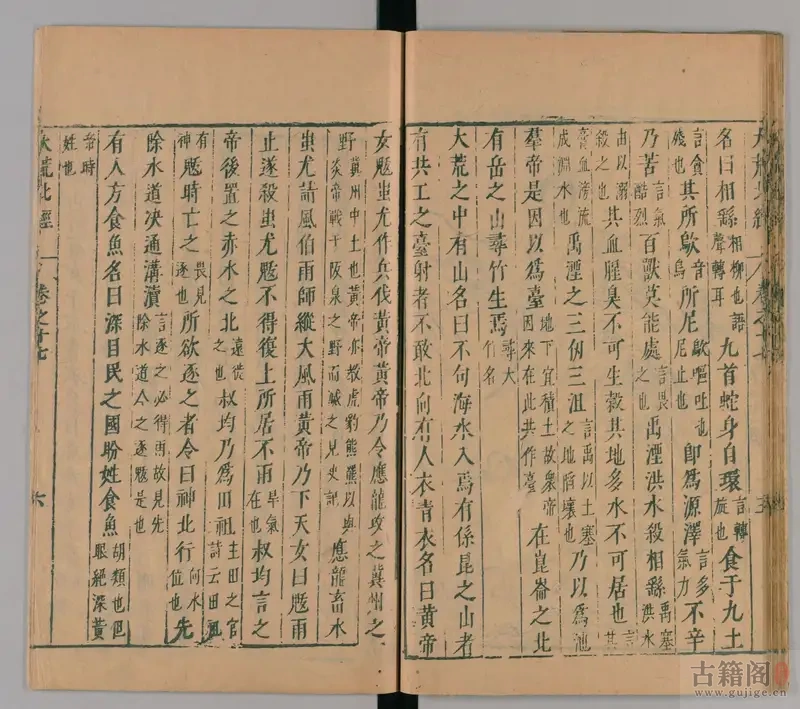 大荒北經 卷之十七 五
名曰相繇相柳也語聲轉耳九首蛇身自環言轉旋也食于九土
言貪殘也其所歍音嗚所尼歍嘔吐也尼止也即爲源澤言多氣力不辛
乃苦言氣酷烈百獸莫能處言畏之也禹湮洪水殺相繇禹塞洪水
由以溺殺之也其血腥臭不可生穀其地多水不可居也言其
膏血滂流成淵水也禹湮之三仞三沮言禹以土塞之地陷壞也乃以爲池
羣帝是因以爲臺地下宜積土故衆帝因來在此共作臺在崑崙之北
有岳之山尋竹生焉尋大竹名
大荒之中有山名曰不句海水入焉有係昆之山者
有共工之臺射者不敢北向有人衣青衣名曰黃帝
女魃蚩尤作兵伐黃帝黃帝乃令應龍攻之冀州之
野冀州中土也黃帝亦教虎豹熊羆以與炎帝戰于阪泉之野而滅之見史記應龍畜水
蚩尤請風伯雨師縱大風雨黃帝乃下天女曰魃雨
止遂殺蚩尤魃不得復上所居不雨旱氣在也叔均言之
帝後置之赤水之北遠徙之也叔均乃爲田祖主田之官詩云田祖
有神魃時亡之畏見逐也所欲逐之者令曰神北行向水位也先
除水道決通溝瀆言逐之必得雨故見先除水道今之逐魃是也
有人方食魚名曰深目民之國盼姓食魚胡類也但眼絕深黃
帝時姓也
大荒北經 卷之十七 六
古籍阁
www.gujige.cn